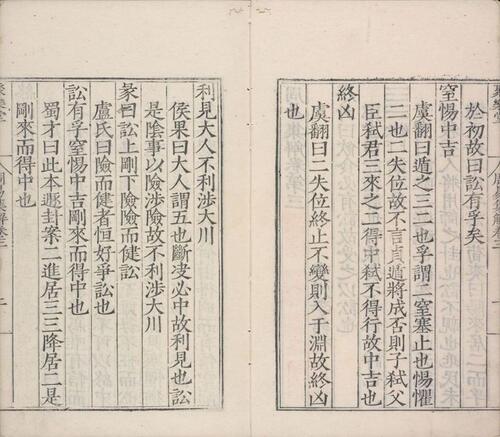 於初故曰訟有孚矣
窒惕中吉
虞翻曰遁之三二也孚謂二窒塞止也惕懼
二也二失位故不言貞遁將成否則子弑父
臣弑君三來之二得中弑不得行故中吉也
終凶
虞翻曰二失位終止不變則入于淵故終凶
也
利見大人不利涉大川
侯果曰大人謂五也斷决必中故利見也訟
是陰事以險涉險故不利涉大川
彖曰訟上剛下險險而健訟
盧氏曰險而健者恒好爭訟也
訟有孚窒惕中吉剛來而得中也
蜀才曰此本遯卦案二進居三三降居二是
剛來而得中也